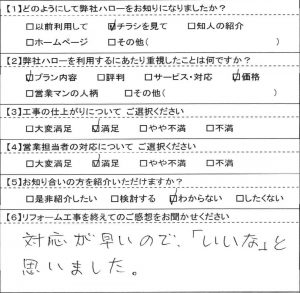 【1】どのようにして弊社ハローをお知りになりましたか？
□以前利用して ☑チラシを見て □知人の紹介
□ホームページ □その他( )
【2】弊社ハローを利用するにあたり重視したことは何ですか？
☑プラン内容 □評判 □サービス・対応 ☑価格
□営業マンの人柄 □その他( )
【3】工事の仕上がりについて ご選択ください
□大変満足 ☑満足 □やや不満 □不満
【4】営業担当者の対応について ご選択ください
□大変満足 ☑満足 □やや不満 □不満
【5】お知り合いの方を紹介いただけますか？
□是非紹介したい □検討する ☑わからない □したくない
【6】リフォーム工事を終えてのご感想をお聞かせください
対応が早いので、「いいな」と
思いました。